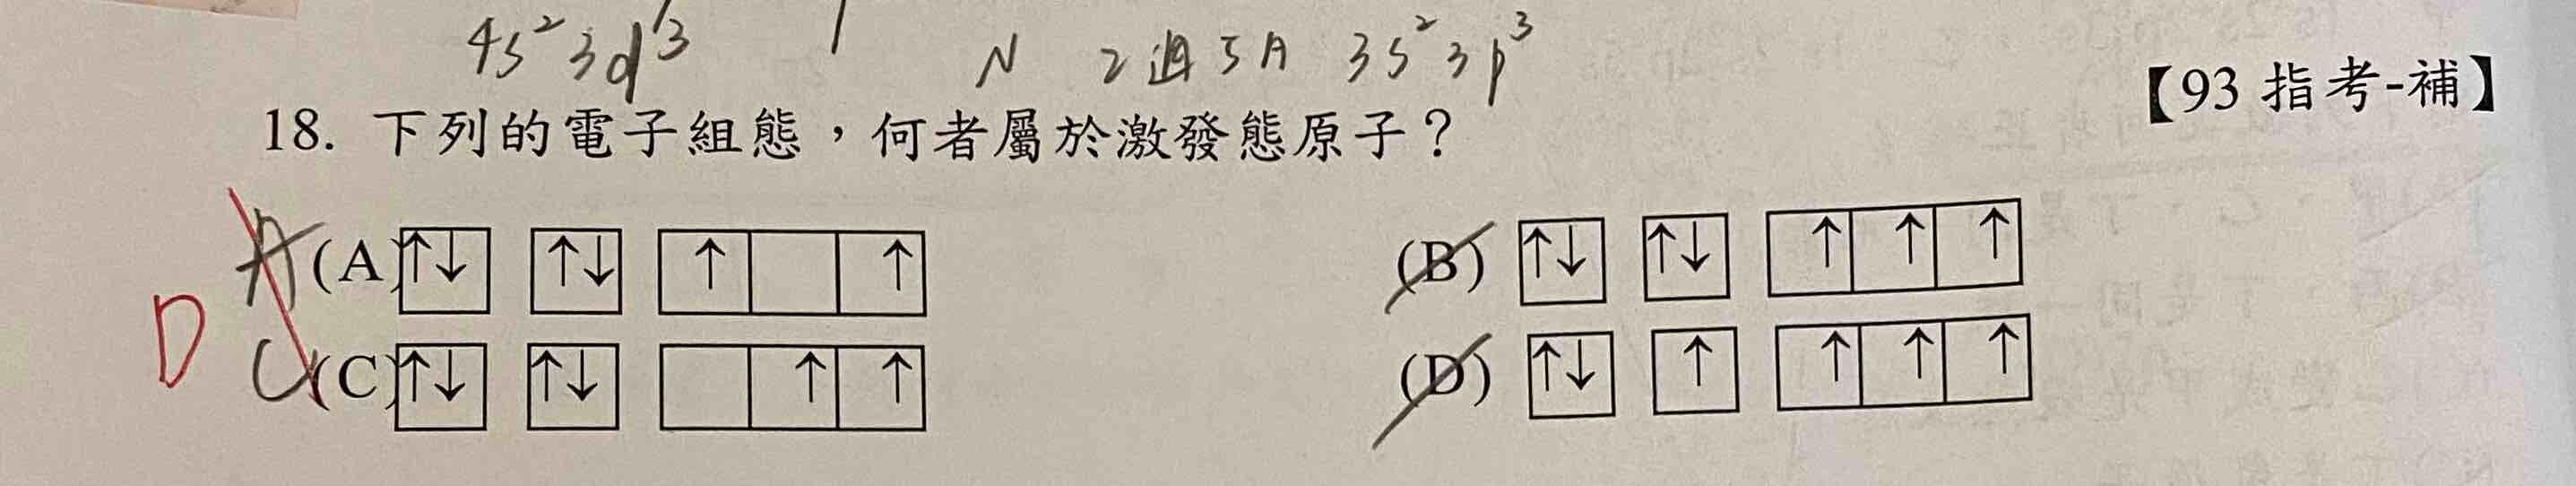 4s²3d³ N 2週5A 3s²3p³
【93 指考-補】
18. 下列的電子組態，何者屬於激發態原子？
A (A) ↑↓ ↑↓ ↑ ↑ (B) ↑↓ ↑↓ ↑ ↑ ↑
D C (C) ↑↓ ↑↓ ↑ ↑ (D) ↑↓ ↑ ↑ ↑ ↑